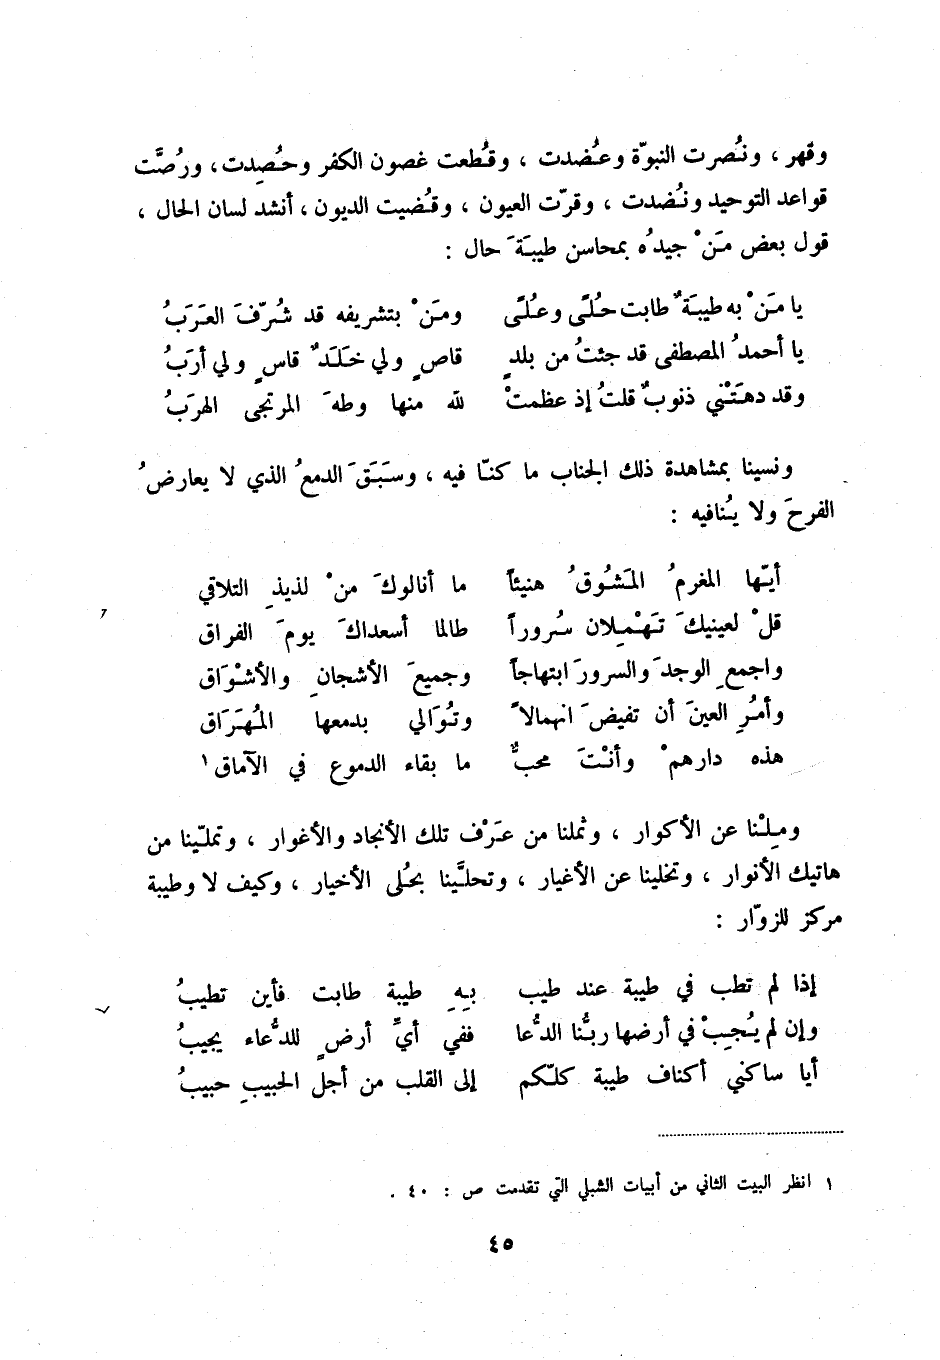 وقهر ، ونُصرت النبوّة وعُضدت ، وقُطعت غصون الكفر وحُصِدت ، ورُصَّت
قواعد التوحيد ونُضدت ، وقرّت العيون ، وقُضيت الديون ، أنشد لسان الحال ،
قول بعض مَنْ جيدُه بمحاسن طيبَةَ حال :
يا مَنْ به طيبَةٌ طابت حُلًى وعُلًى ومَنْ بتشريفه قد شُرّفَ العَرَبُ
يا أحمدُ المصطفى قد جئتُ من بلدٍ قاصٍ ولي خَلَدٌ قاسٍ ولي أرَبُ
وقد دهَتْني ذنوبٌ قلتُ إذ عظمتْ لله منها وطهَ المرتجى الهرَبُ
ونسينا بمشاهدة ذلك الجناب ما كنّا فيه ، وسَبَقَ الدمعُ الذي لا يعارضُ
الفرحَ ولا يُنافيه :
أيّها المغرمُ المَشُوقُ هنيئاً ما أنالوكَ منْ لذيذِ التلاقي
قلْ لعينيكَ تَهْمِلان سُروراً طالما أسعداكَ يومَ الفراق
واجمعِ الوجدَ والسرورَ ابتهاجاً وجميعَ الأشجانِ والأشْوَاق
وأمُرِ العينَ أن تفيضَ انهمالاً وتُوَالي بدمعها المُهَرَاق
هذه دارهمْ وأنْتَ محبٌّ ما بقاء الدموع في الآماق١
ومِلْنا عن الأكوار ، وثملنا من عَرْف تلك الأنجاد والأغوار ، وتملّينا من
هاتيك الأنوار ، وتخلينا عن الأغيار ، وتحلَّينا بحُلى الأخيار ، وكيف لا وطيبة
مركز للزوّار :
إذا لم تطب في طيبة عند طيب بِهِ طيبة طابت فأين تطيبُ
وإن لم يُجِبْ في أرضها ربُّنا الدُّعا ففي أيِّ أرضٍ للدُّعاء يجيبُ
أيا ساكني أكناف طيبة كلّكم إلى القلب من أجل الحبيبِ حبيبُ
١ انظر البيت الثاني من أبيات الشبلي التي تقدمت ص : ٤٠ .
٤٥